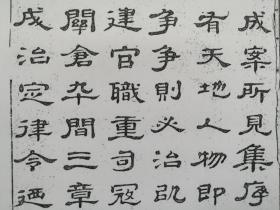 成案所見集序
有天地人物即
争争則必治
建官職重司寇
關倉卒間三章
成治定律令迺